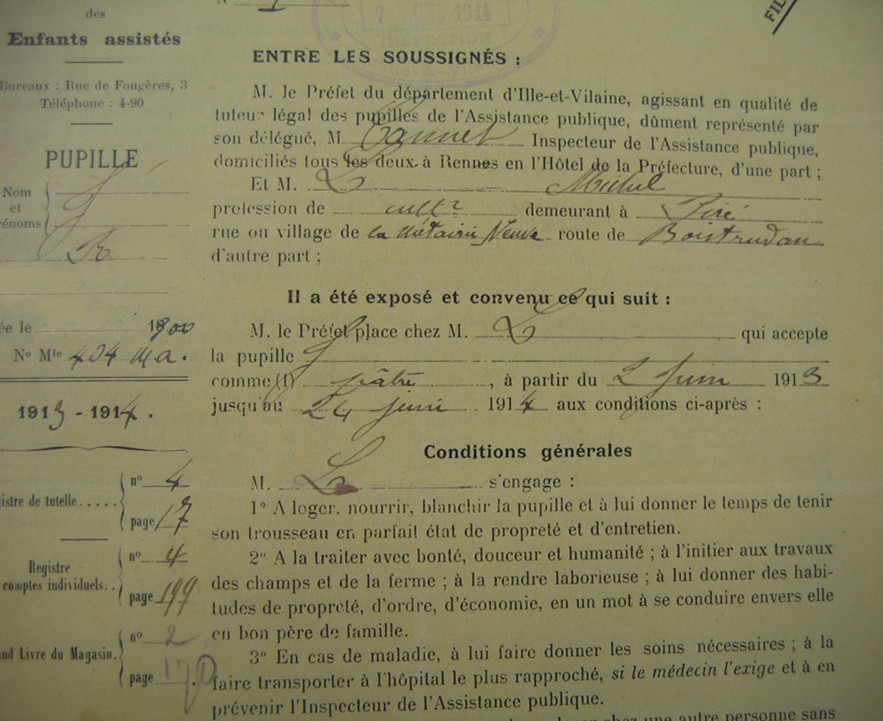 des
Enfants assistés
Bureaux : Rue de Fougères, 3
Téléphone : 4-90
PUPILLE
Nom
et
rénoms
R
ée le 1900
No Mle 434 Ma.
1913 - 1914.
istre de tutelle..... n° 4
page 17
Registre
comptes individuels.. n° 4
page 199
nd Livre du Magasin. n° 2
page 178
7 1914
FIL
ENTRE LES SOUSSIGNÉS :
M. le Préfet du département d'Ille-et-Vilaine, agissant en qualité de
tuteur légal des pupilles de l'Assistance publique, dûment représenté par
son délégué, M. Inspecteur de l'Assistance publique,
domiciliés tous les deux à Rennes en l'Hôtel de la Préfecture, d'une part ;
Et M. L Michel
profession de cultr demeurant à Piré
rue ou village de la Métairie Neuve route de Boistrudan
d'autre part ;
Il a été exposé et convenu ce qui suit :
M. le Préfet place chez M. L qui accepte
la pupille
comme (1) pâtre , à partir du 2 Juin 1913
jusqu'au 24 juin 1914 aux conditions ci-après :
Conditions générales
M. L s'engage :
1° A loger, nourrir, blanchir la pupille et à lui donner le temps de tenir
son trousseau en parfait état de propreté et d'entretien.
2° A la traiter avec bonté, douceur et humanité ; à l'initier aux travaux
des champs et de la ferme ; à la rendre laborieuse ; à lui donner des habi-
tudes de propreté, d'ordre, d'économie, en un mot à se conduire envers elle
en bon père de famille.
3° En cas de maladie, à lui faire donner les soins nécessaires ; à la
faire transporter à l'hôpital le plus rapproché, si le médecin l'exige et à en
prévenir l'Inspecteur de l'Assistance publique.
chez une autre personne sans